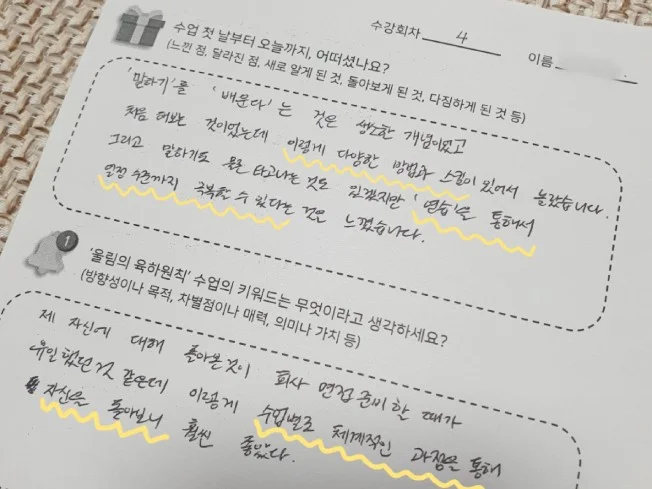 수강회차 4 이름
수업 첫 날부터 오늘까지, 어떠셨나요?
(느낀 점, 달라진 점, 새로 알게 된 것, 돌아보게 된 것, 다짐하게 된 것 등)
'말하기'를 '배운다'는 것은 생소한 개념이었고
처음 해보는 것이었는데 이렇게 다양한 방법과 스킬이 있어서 놀랐습니다.
그리고 말하기도 물론 타고나는 것도 있겠지만 '연습'을 통해서
일정 수준까지 극복할 수 있다는 것을 느꼈습니다.
1
'울림의 육하원칙' 수업의 키워드는 무엇이라고 생각하세요?
(방향성이나 목적, 차별점이나 매력, 의미나 가치 등)
제 자신에 대해 돌아본 것이 회사 면접 준비할 때가
유일했던 것 같은데 이렇게 수업별로 체계적인 과정을 통해
자신을 돌아보니 훨씬 좋았다.